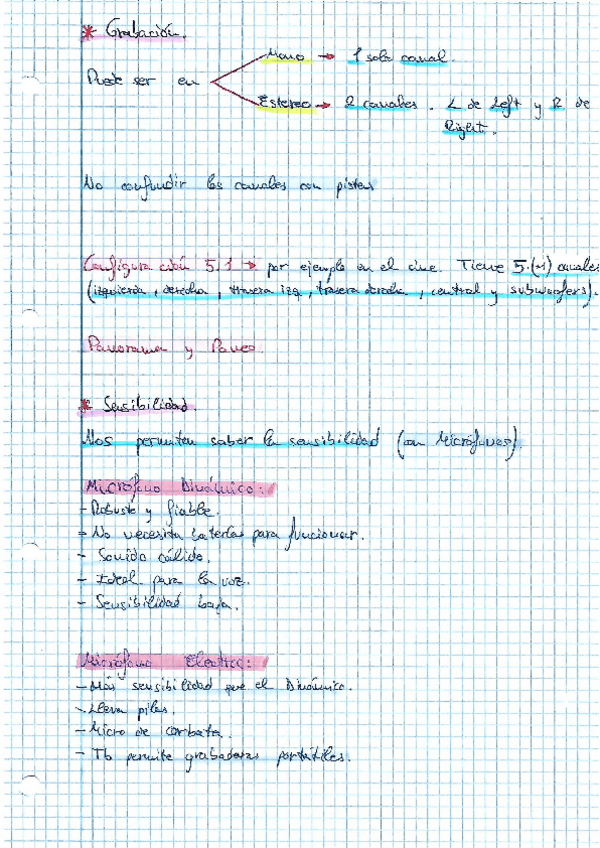 * Grabación.
Puede ser en
Mono → 1 solo canal.
Estereo → 2 canales. L de Left y R de
Right.
No confundir los canales con pistas
Configuración 5.1 → por ejemplo en el cine. Tiene 5.(+1) canales
(izquierda, derecha, trasera izq, trasera derecha, central y subwoofers).
Panorama y Paneo.
* Sensibilidad.
Nos permiten saber la sensibilidad (en Micrófonos).
Micrófono Dinámico:
- Robusto y fiable.
- No necesita baterías para funcionar.
- Sonido cálido.
- Ideal para la voz.
- Sensibilidad baja.
Micrófono Electret:
- Más sensibilidad que el Dinámico.
- Lleva pilas.
- Micro de corbata.
- Tb permite grabadoras portátiles.